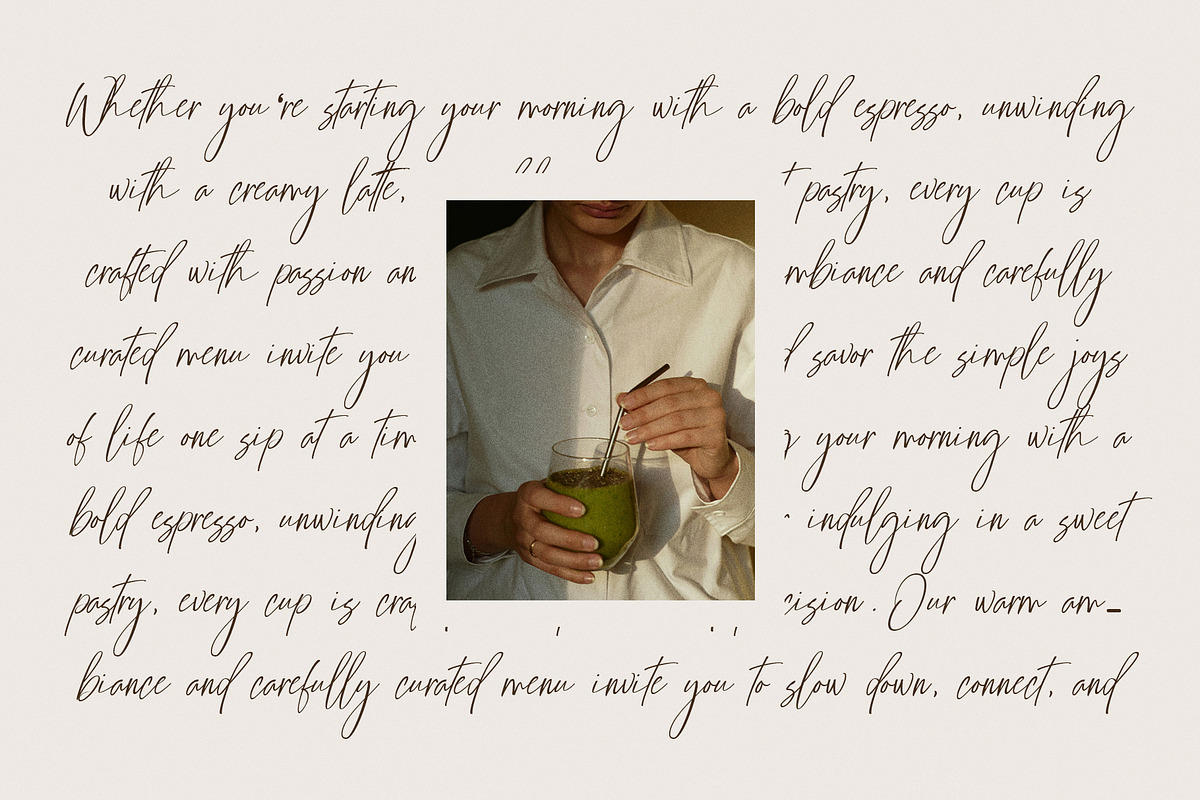 Whether you're starting your morning with a bold espresso, unwinding
with a creamy latte, pastry, every cup is
crafted with passion and carefully
curated menu invite you savor the simple joys
of life one sip at a your morning with a
bold espresso, unwinding indulging in a sweet
pastry, every cup is Our warm am-
biance and carefully curated menu invite you to slow down, connect, and